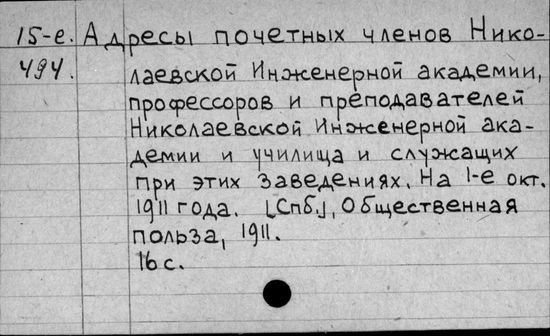 15-е. Адресы почетных членов Нико-
494. лаевской Инженерной академии,
профессоров и преподавателей
Николаевской Инженерной ака-
демии и училища и служащих
при этих заведениях. На 1-е окт.
1911 года. [Спб.], Общественная
польза, 1911.
16 с.